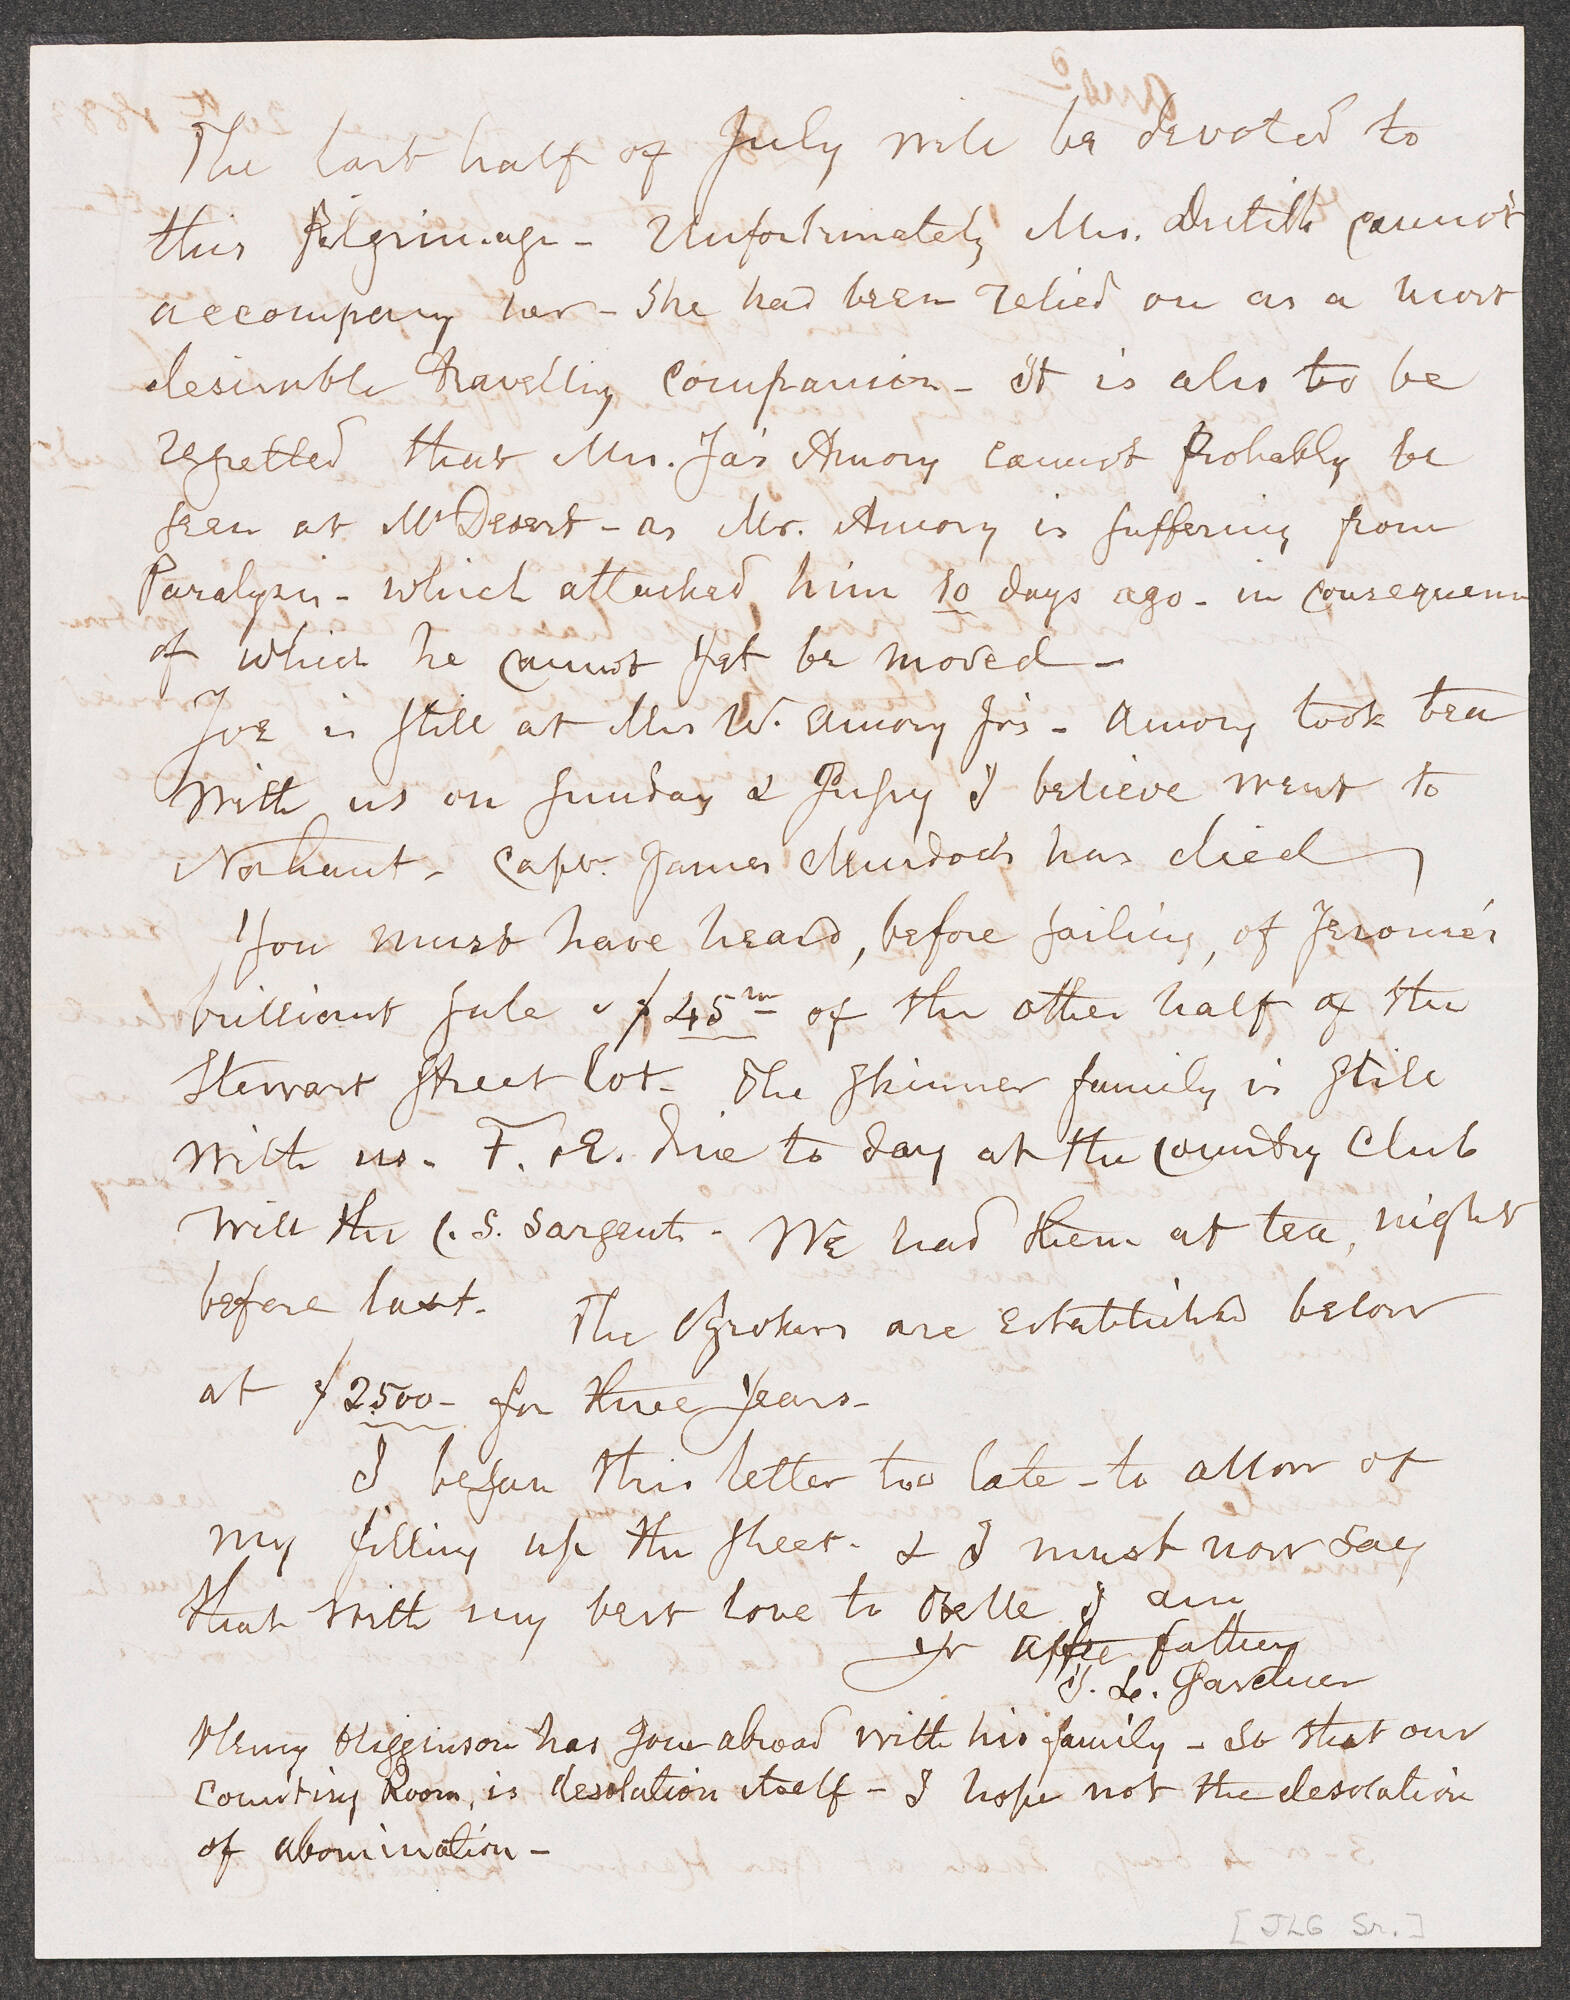 The last half of July will be devoted to
this pilgrimage - Unfortunately Mrs. cannot
accompany her - She had been relied on as a most
desirable travelling companion - It is also to be
regretted that Mrs. Jas Amory cannot probably be
seen at Mt Desert - as Mr. Amory is suffering from
Paralysis - which attacked him 10 days ago - in consequence
of which he cannot yet be moved -
Joe is still at Mrs W. Amory Jr's - Amory took tea
with us on Sunday & I believe went to
Nahant - Capt. James Murdock has died
You must have heard, before sailing, of Jerome's
brilliant sale $45m of the other half of the
Stewart Street lot - The Skinner family is still
with us - F. & E. dine to day at the Country Club
with the C. S. Sargents - We had them at tea, night
before last. The are established below
at $2500 - for three years -
I began this letter too late - to allow of
my filling up the sheet - & I must now say
that with my best love to Belle I am
Yr affte father
J. L. Gardner
Henry Higginson has gone abroad with his family - so that our
counting Room, is desolation itself - I hope not the desolation
of abomination -
[JLG Sr.]